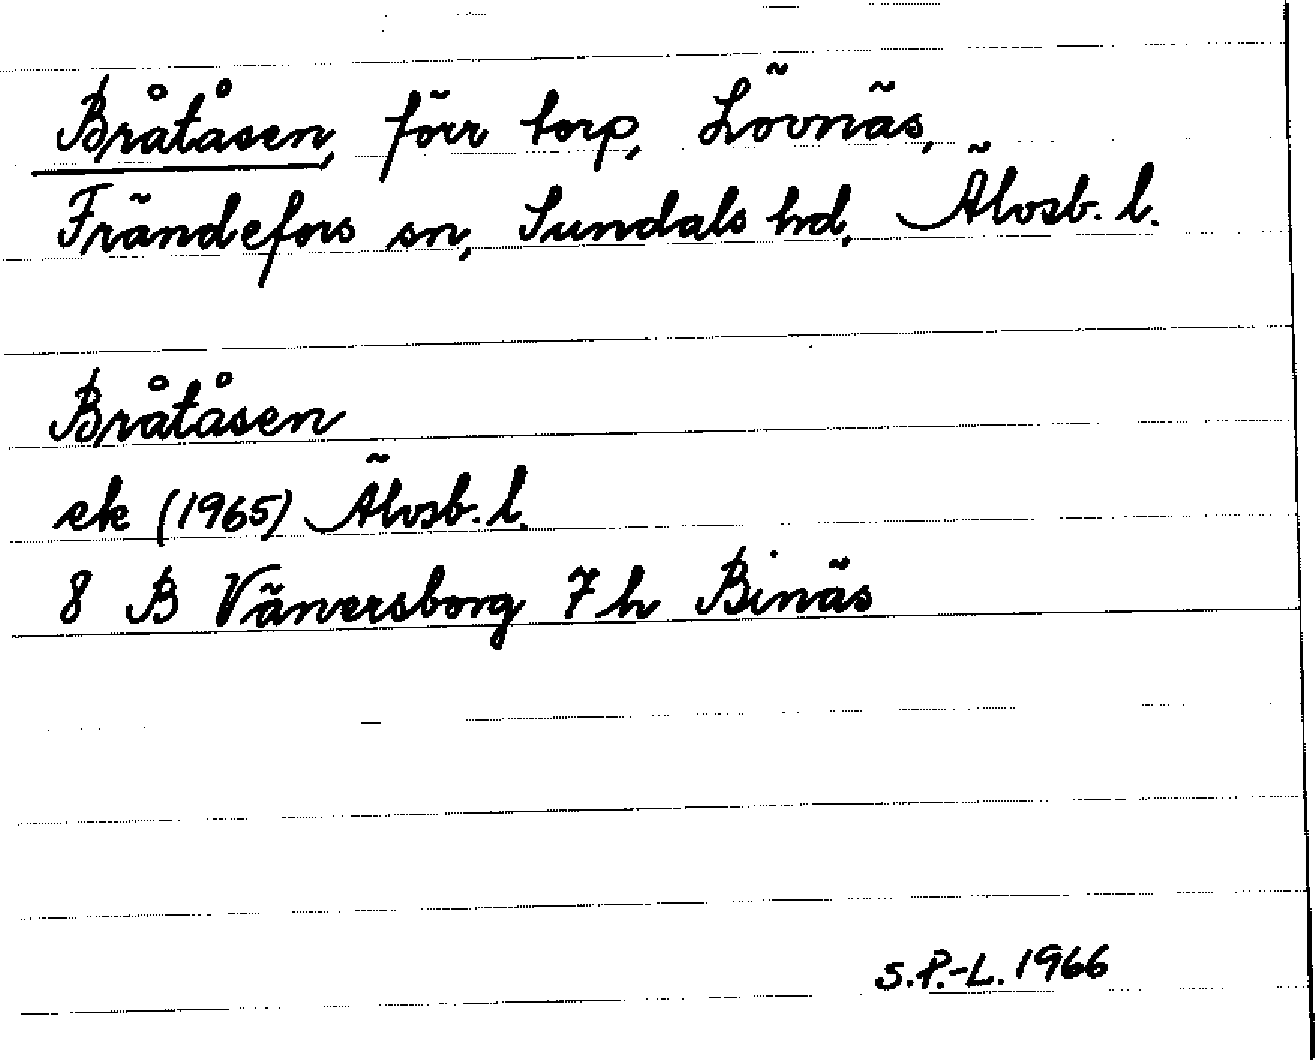 Bråtåsen, förr torp, Lövnäs,
Frändefors sn, Sundals hd, Älvsb. l.
Bråtåsen
ek (1965) Älvsb. l.
8 B Vänersborg 7 h Binäs
S.P.-L. 1966